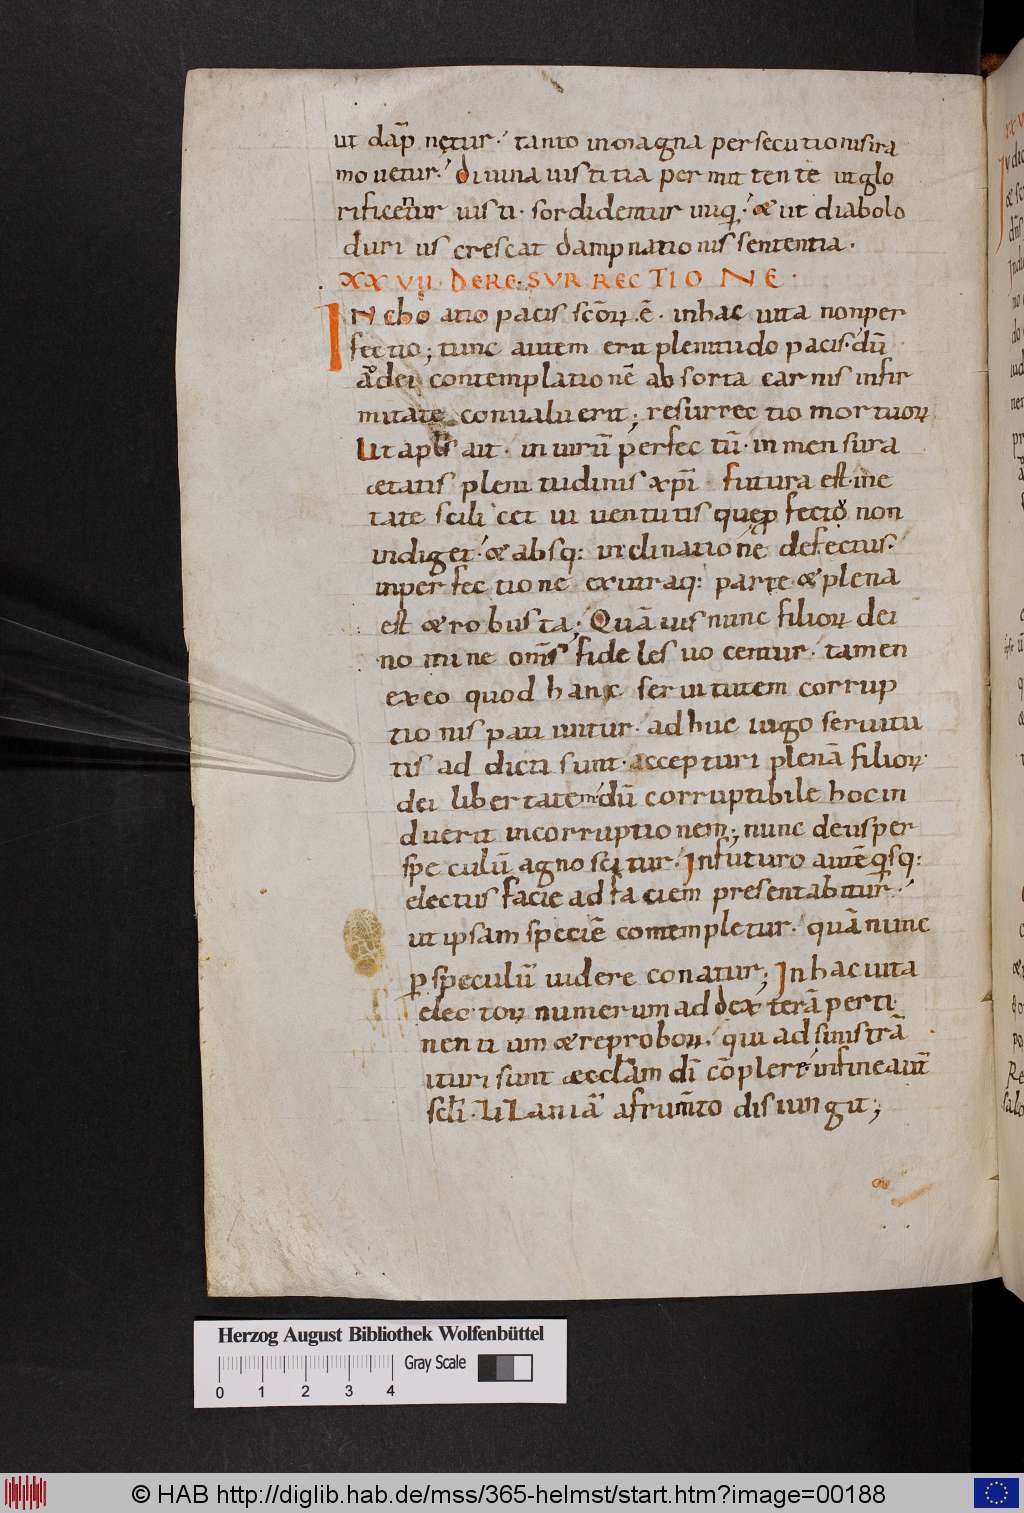 ut dāp nętur· tanto inmagna persecutionis ira
mouetur· diuina iustitia permittente ut glo
rificentur iusti· sordidentur iniq· & ut diabolo
durius crescat dampnationis sententia·
XXVII· DE RESURRECTIONE·
INchoatio pacis scōꝝ ·ē· in hac uita non per
fectio; tunc autem erit plenitudo pacis· dū
ad dei contemplationē absorta carnis infir
mitate conualuerit; resurrectio mortuoꝝ
Ut apls ait· in uirū perfectū· in mensura
ætatis plenitudinis xp̄i futura est· in e
tate scilicet iuuentutis quę ꝑfectiō non
indiget· & absq: inclinatione defectus·
in perfectione ex utraq: parte & plena
est & robusta; Quāuis nunc filioꝝ dei
nomine om̄s fideles uocentur· tamen
ex eo quod hanc seruitutem corrup
tionis patiuntur· adhuc iugo seruitu
tis addicti sunt· accepturi plenā filioꝝ
dei libertatem· dū corruptibile hoc in
duerit incorruptionem; nunc deus per
speculū agnoscitur· In futuro autē qsq:
electus facie ad faciem presentabitur·
ut ipsam speciē contempletur· quā nunc
ꝑ speculū uidere conatur; In hac uita
electoꝝ numerum ad dexterā perti
nentium & reproboꝝ· qui ad sinistrā
ituri sunt æcclam dī cōplere· in fine aut̄
scli· lilaniā a frumto disiungit;
Herzog August Bibliothek Wolfenbüttel
Gray Scale
0 1 2 3 4
© HAB http://diglib.hab.de/mss/365-helmst/start.htm?image=00188